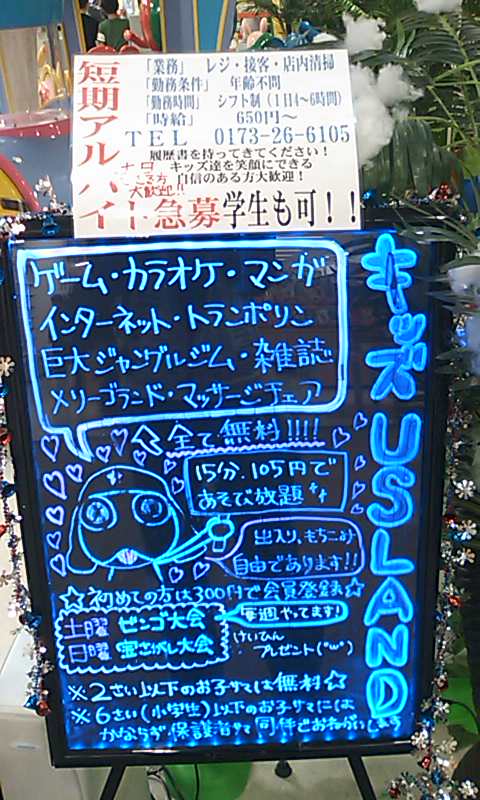 短期アルバイト急募学生も可！！
「業務」 レジ・接客・店内清掃
「勤務条件」 年齢不問
「勤務時間」 シフト制（1日4～6時間）
「時給」 650円～
TEL 0173-26-6105
履歴書を持ってきてください！
キッズ達を笑顔にできる
自信のある方大歓迎！
土日
大歓迎!!
キッズ USLAND
ゲーム・カラオケ・マンガ
インターネット・トランポリン
巨大ジャングルジム・雑誌
メリーゴランド・マッサージチェア
全て無料!!!!
15分、105円で
あそび放題
出入り、もちこみ
自由であります!!
☆初めての方は300円で会員登録☆
土曜 ビンゴ大会
日曜 宝さがし大会
毎週やってます!
けいひん
プレゼント(^w^)
※2さい以下のお子サマは無料☆
※6さい(小学生)以下のお子サマには
かならず保護者サマ同伴でおねがいします